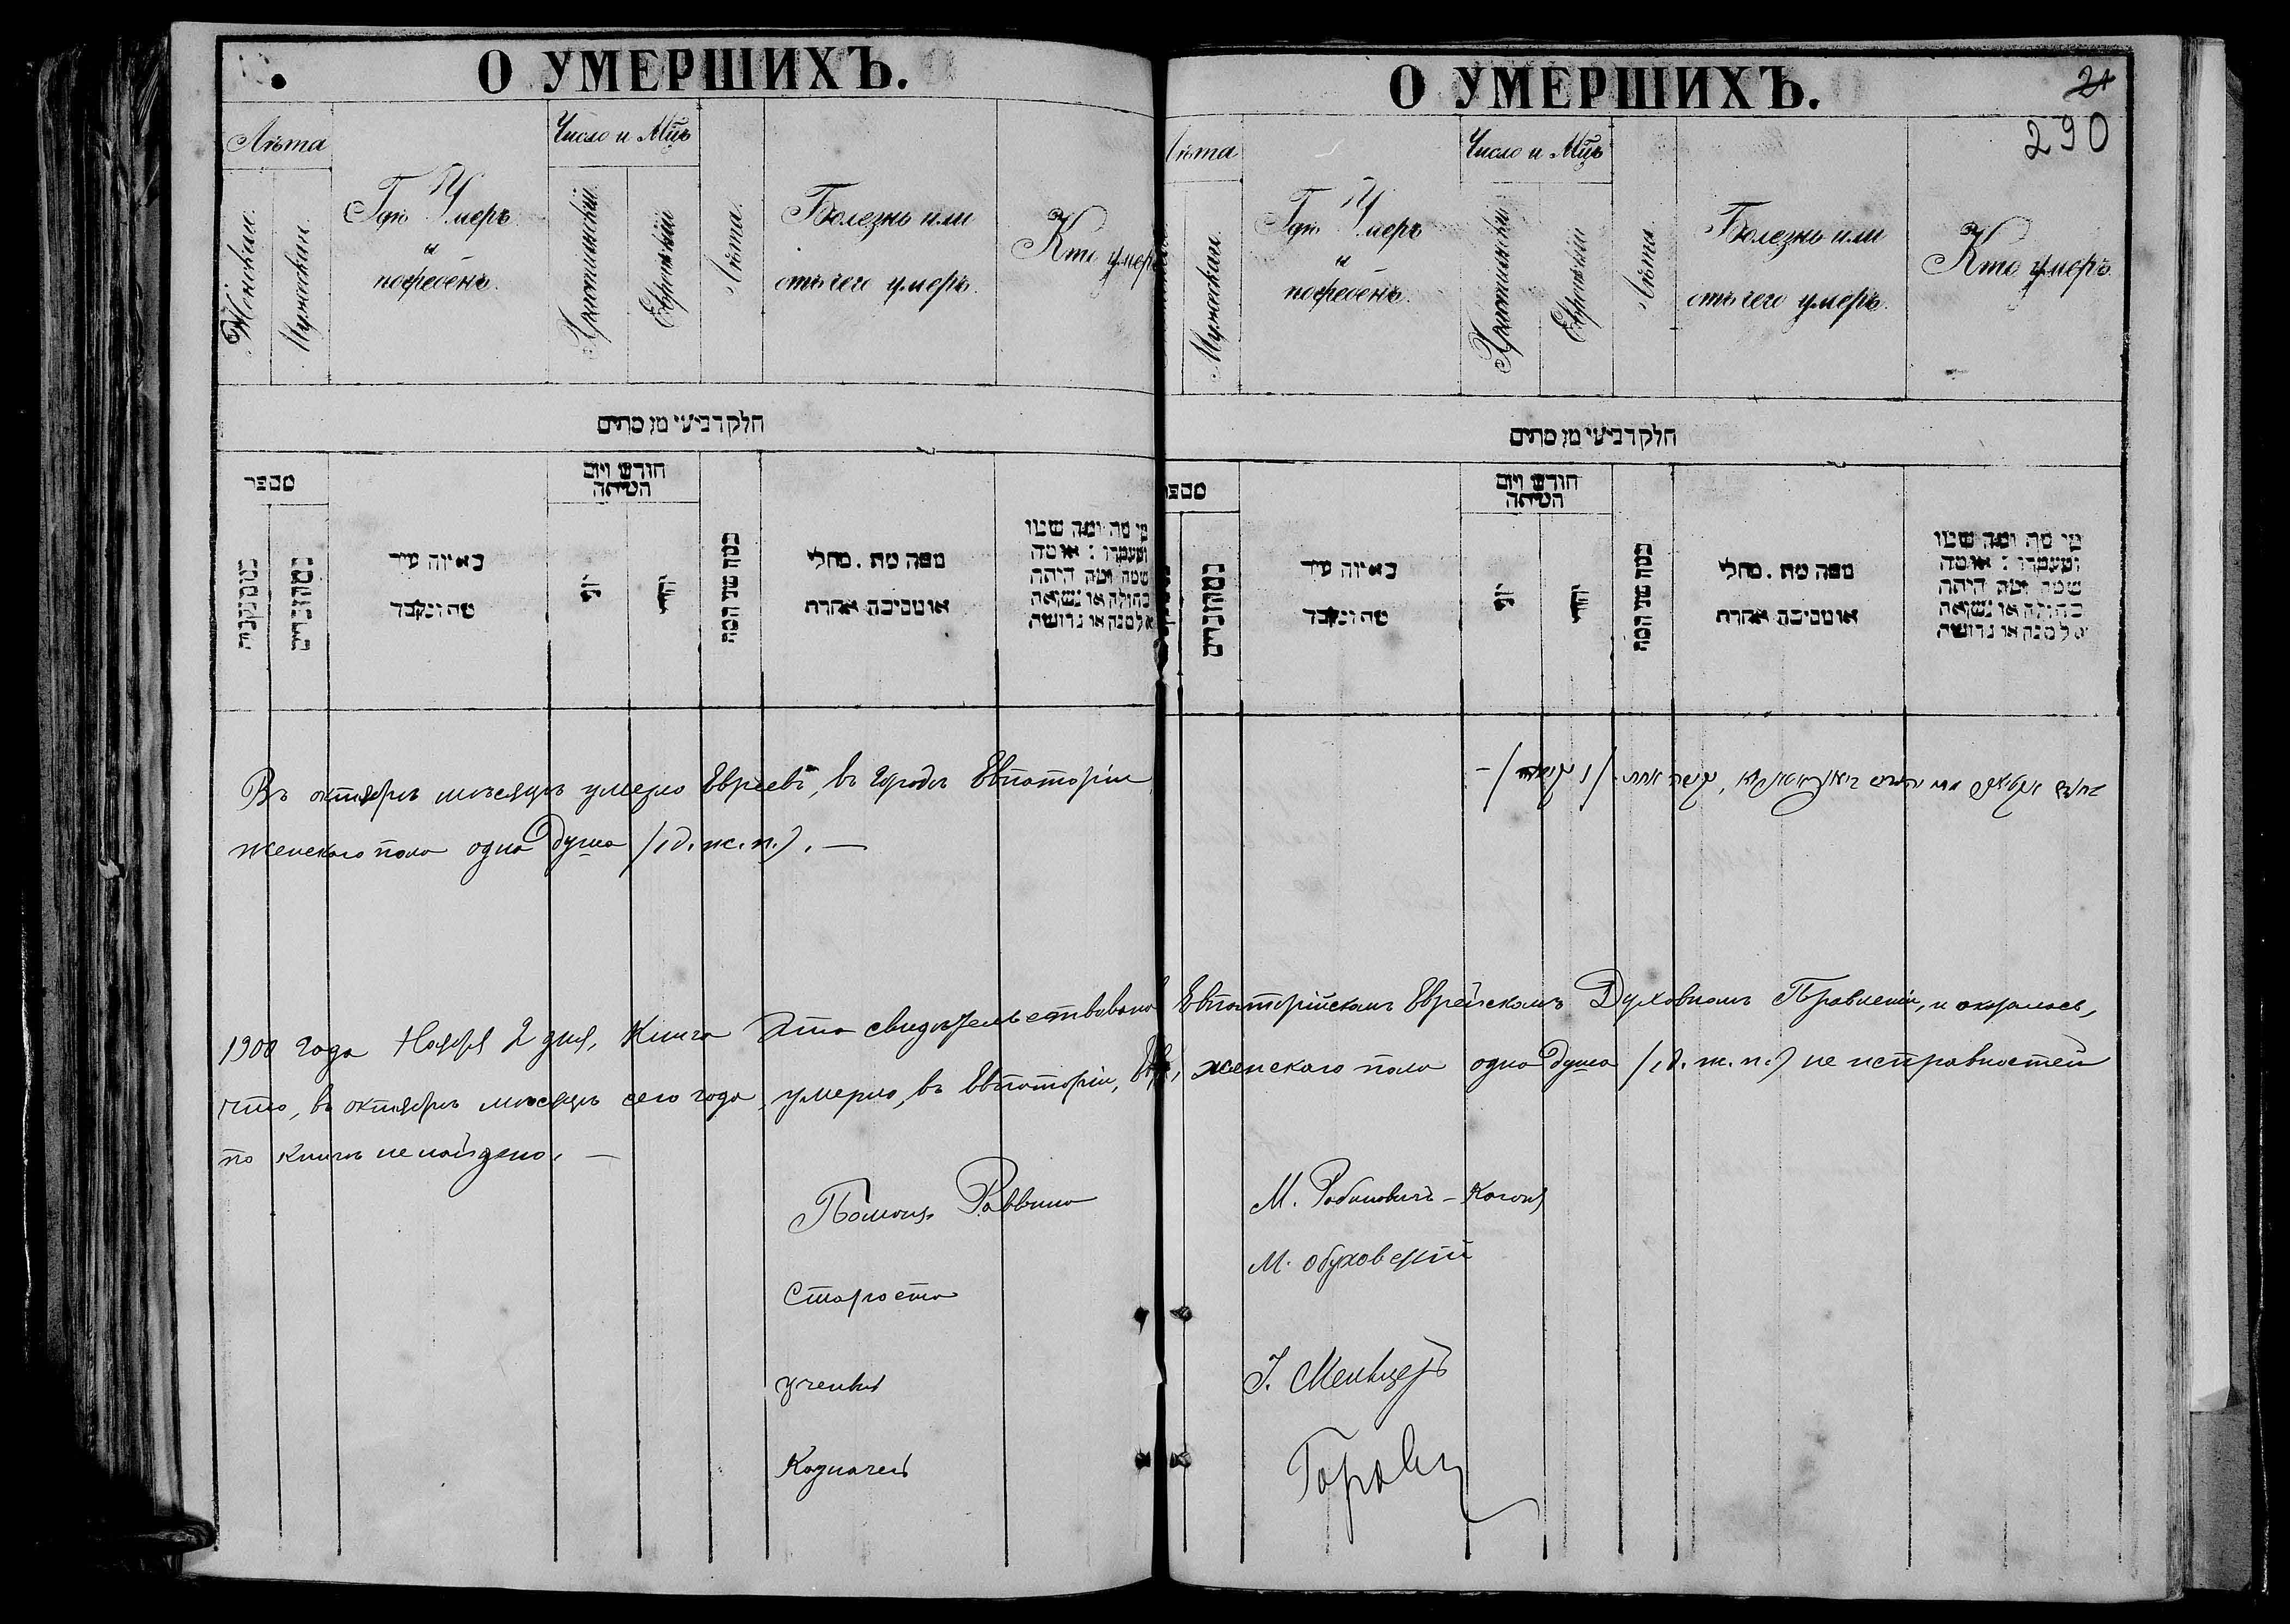 О УМЕРШИХЪ.
Лѣта
Женскаго.
Мужескаго.
Гдѣ Умеръ
и
погребенъ.
Число и Мц҃ъ
Христіанскій
Еврейскій
Лѣта.
Болезнь или
отъ чего умеръ.
Кто умеръ
חלק רביעי מן מתים
מספר
מהנקבות
מהזכרים
באיזה עיר
מת ונקבר
חודש ויום
המיתה
יוני
יהודי
כמה שני המת
מפה מת . מחלי
או מסיבה אחרת
מי מת ומה שמו
ומעמדו : או מה
שמה ומה היתה
בתולה או נשואה
אלמנה או גרושה
Въ октябрѣ мѣсяцѣ умерло Евреевъ, въ городѣ Евпаторіи
женскаго пола одна душа /1 д. ж. п.). —
О УМЕРШИХЪ.
21
290
Лѣта
Мужескаго.
Гдѣ Умеръ
и
погребенъ.
Число и Мц҃ъ
Христіанскій
Еврейскій
Лѣта.
Болезнь или
отъ чего умеръ.
Кто умеръ.
חלק רביעי מן מתים
מספר
מהזכרים
באיזה עיר
מת ונקבר
חודש ויום
המיתה
יוני
יהודי
כמה שני המת
מפה מת . מחלי
או מסיבה אחרת
מי מת ומה שמו
ומעמדו : או מה
שמה ומה היתה
בתולה או נשואה
אלמנה או גרושה
1900 года Ноября 2 дня, Книга эта свидѣтельствована Евпаторійскомъ Еврейскомъ Духовномъ Правленіи, и оказалось,
что, въ октябрѣ мѣсяцѣ сего года, умерло, въ Евпаторіи, Евр., женскаго пола одна душа /1 д. ж. п.) не исправностей
по книгѣ не найдено. —
Помощ. Раввина М. Рабиновичъ - Коганъ
Староста М. Обуховскій
ученый І. Мельцеръ
Казначей